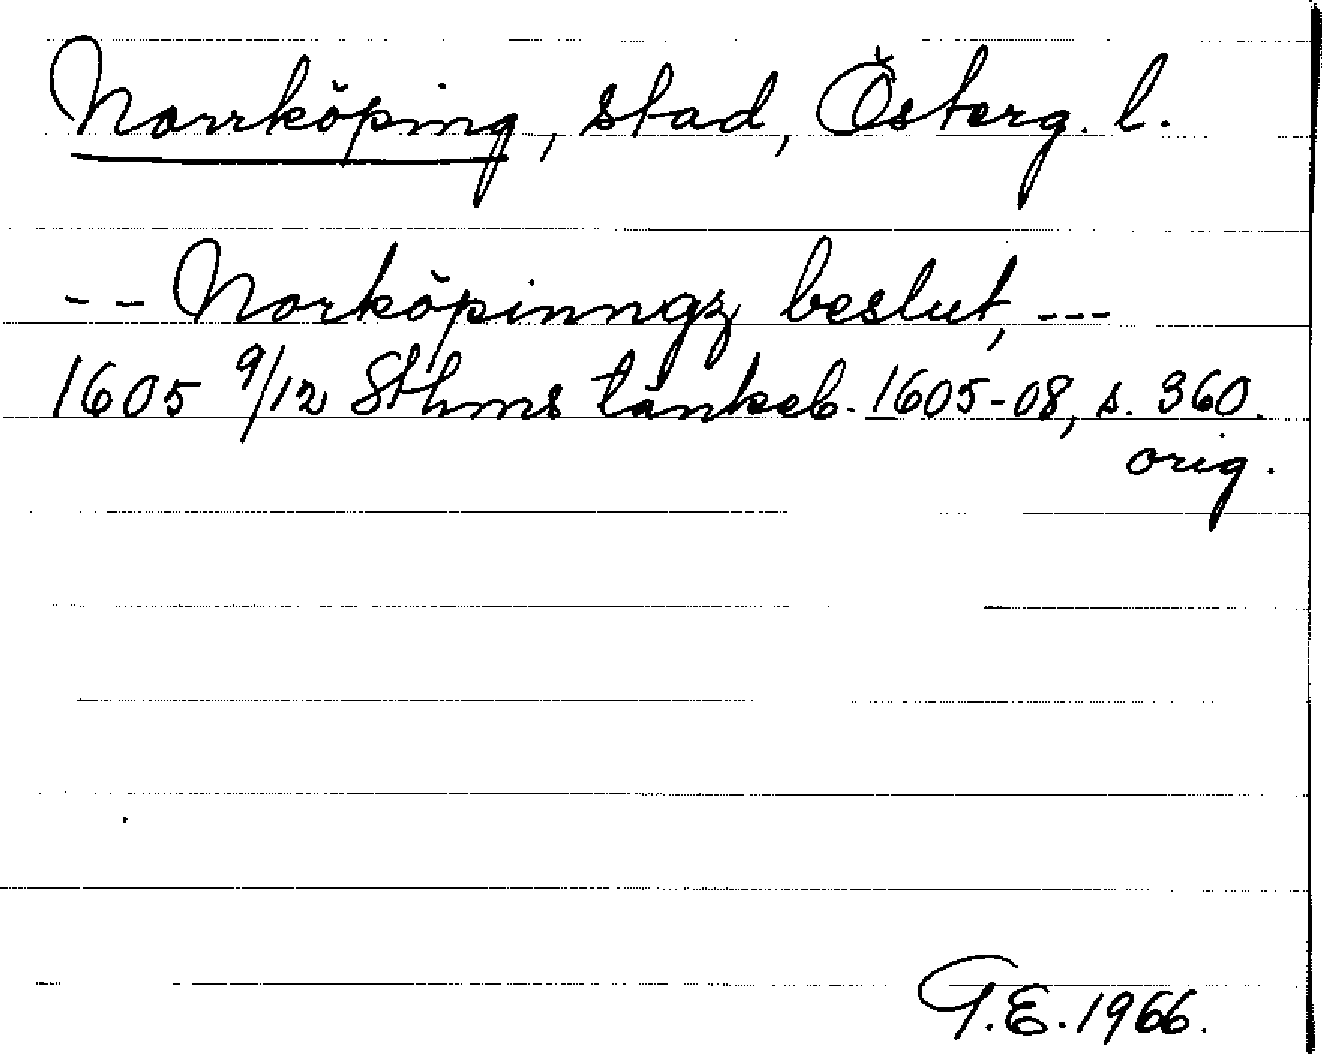 Norrköping, stad, Österg. l.
-- Norköpinngz beslut, ---
1605 9/12 Sthms tänkeb. 1605-08, s. 360.
orig.
G.E. 1966.